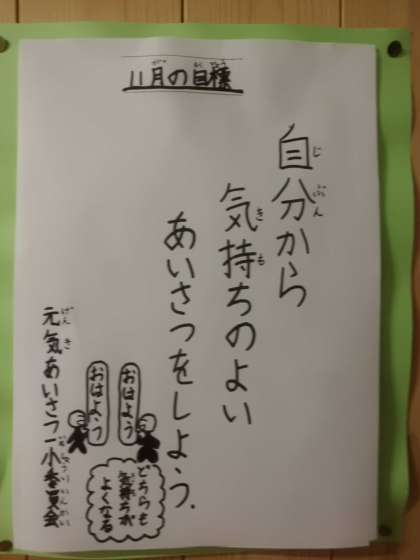 11月の目標
自分から
気持ちのよい
あいさつをしよう.
おはよう
おはよう
どちらも
気持ちが
よくなる
元気あいさつ一小委員会